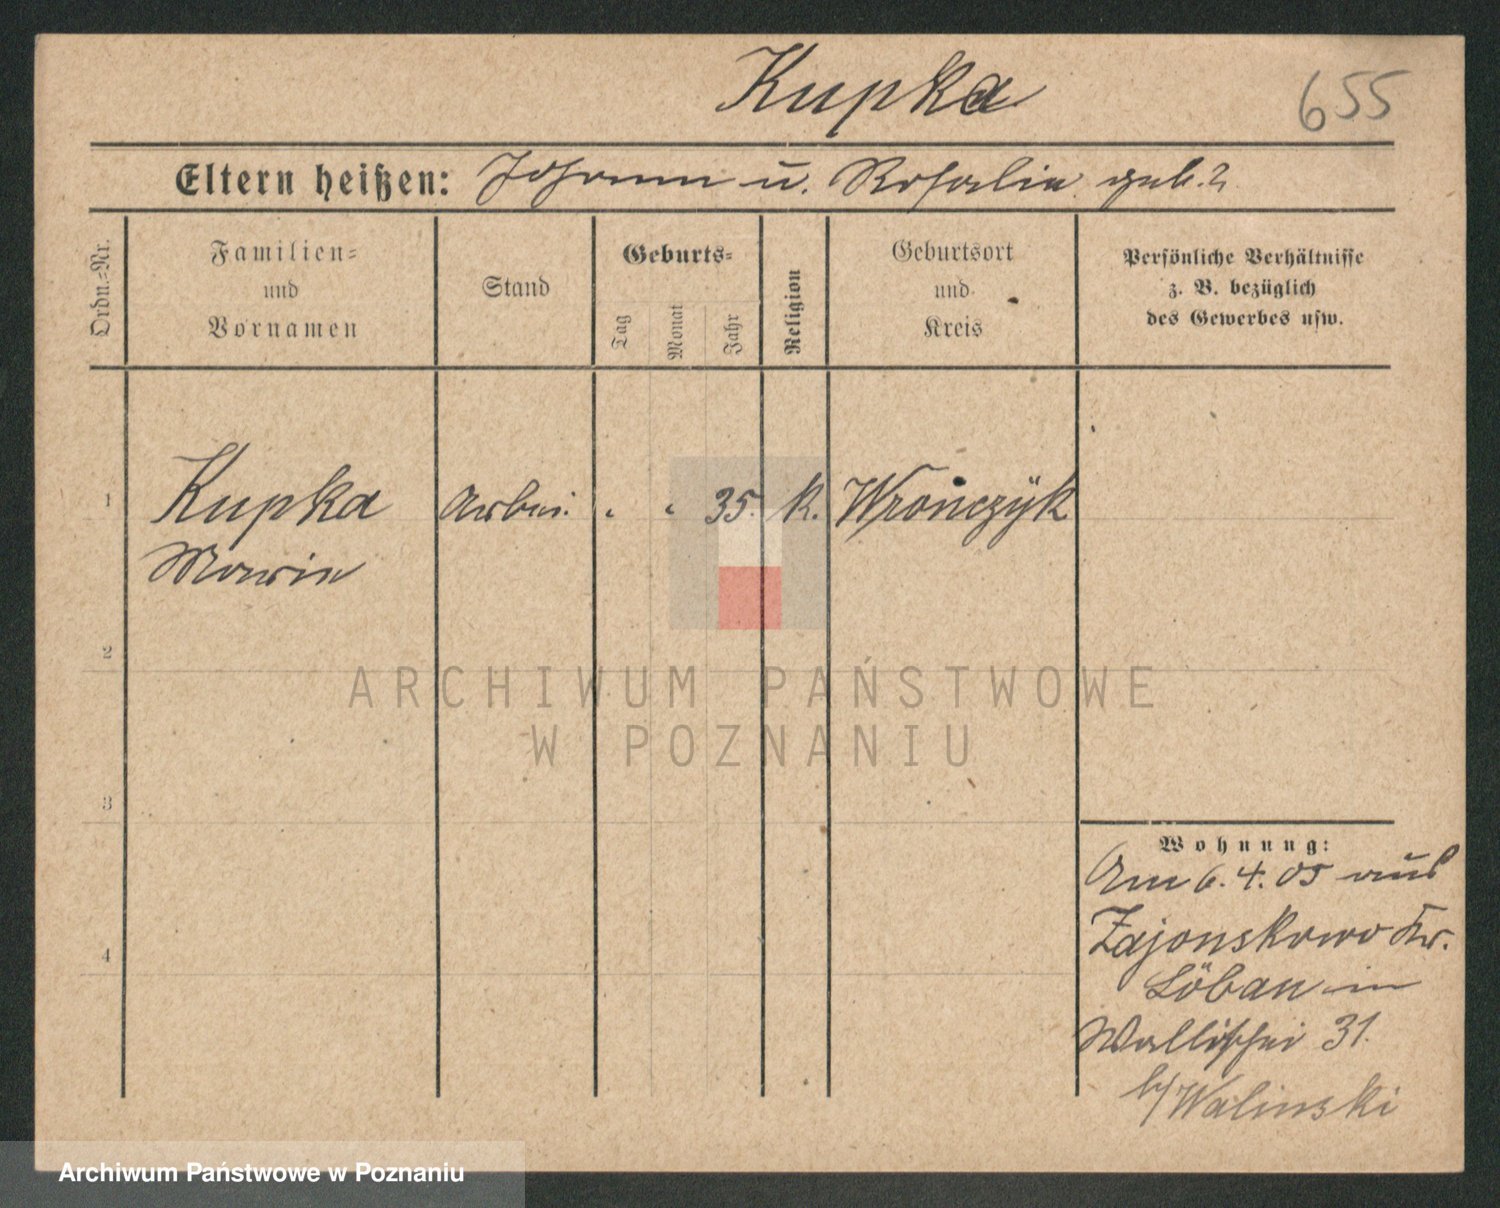 Kupka
655
Eltern heißen: Johann u. Rosalia geb. ?
Ordn.=Nr.
Familien=
und
Vornamen
Stand
Geburts=
Tag
Monat
Jahr
Religion
Geburtsort
und
Kreis
Persönliche Verhältnisse
z. B. bezüglich
des Gewerbes usw.
1
Kupka Arbei. 35. k. Wronczyk
Maria
2
ARCHIWUM PAŃSTWOWE
W POZNANIU
3
Wohnung:
Am 6.4.05 aus
Zajonskowo Kr.
4
Löbau in
Wallischei 31.
b/Walinski
Archiwum Państwowe w Poznaniu